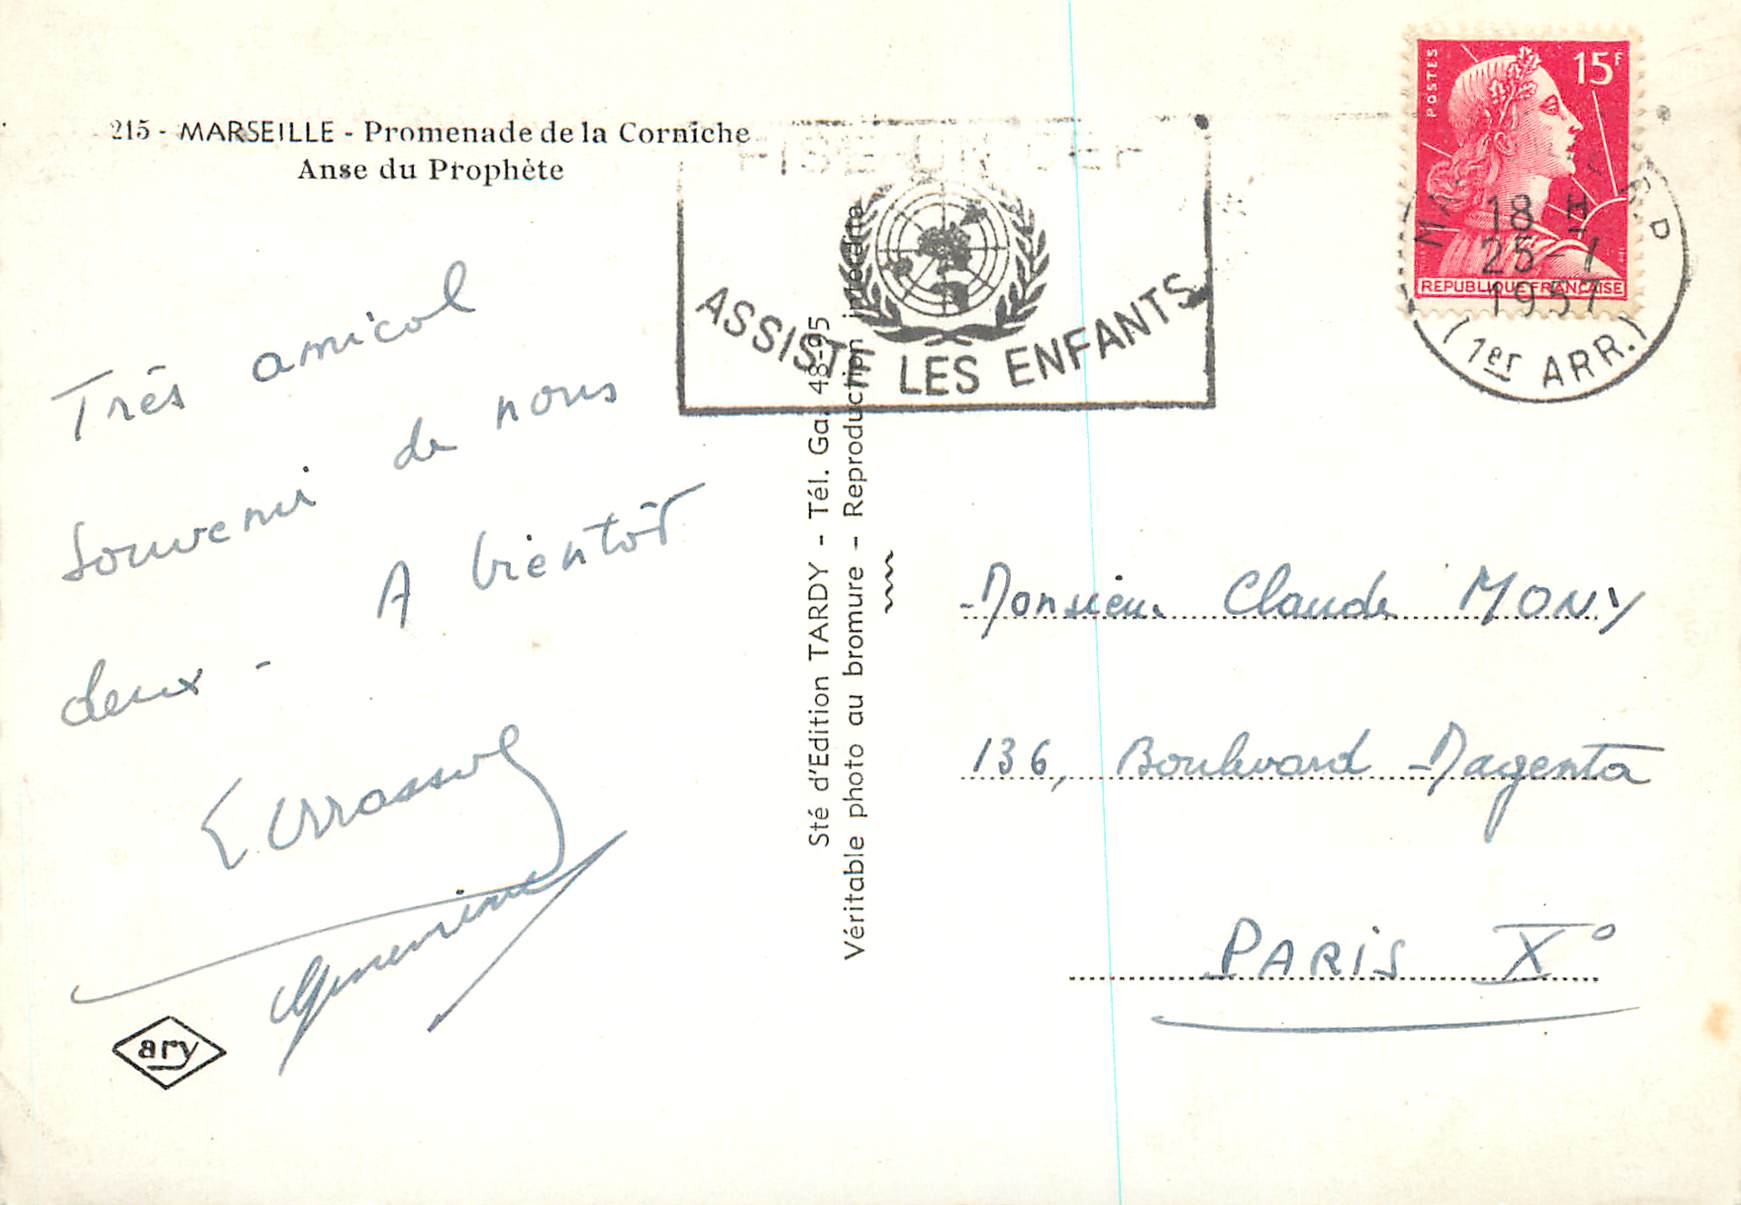 215 - MARSEILLE - Promenade de la Corniche
Anse du Prophète
Très amical
souvenir de nous
deux - A bientôt
Geneviève
ary
Sté d'Edition TARDY - Tél. Ga. 48-95
Véritable photo au bromure - Reproduction interdite
ASSISTE LES ENFANTS
POSTES
15F
REPUBLIQUE FRANÇAISE
18 H
25-1
1957
(1er ARR.)
Monsieur Claude MONY
136, Boulevard Magenta
PARIS X°